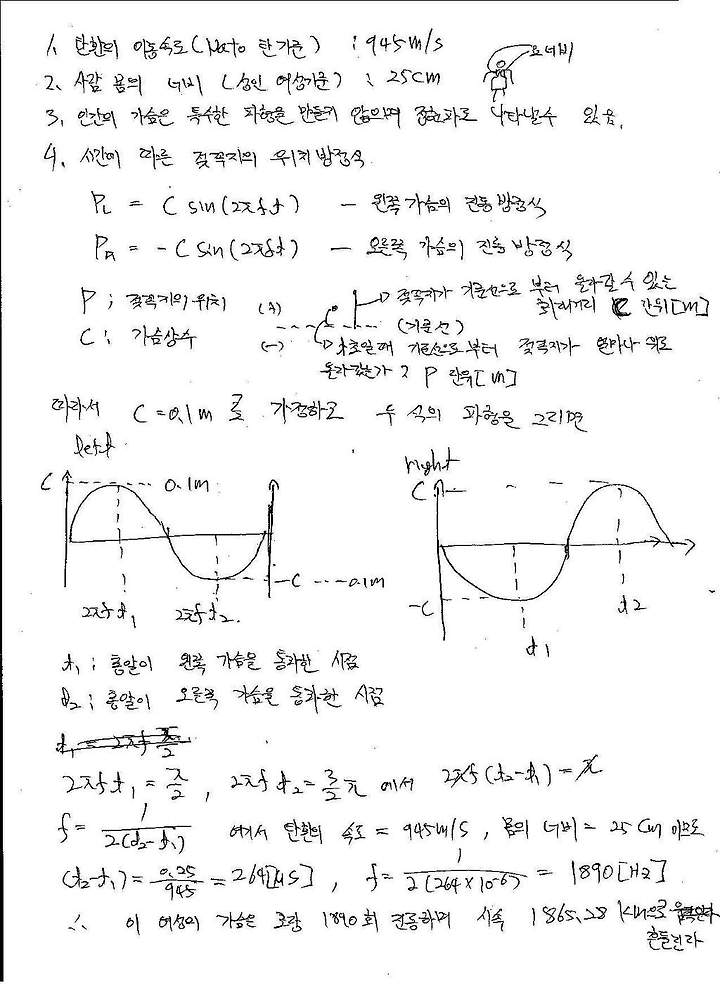 1. 탄환의 이동속도(Nato 탄기준) : 945m/s
2. 사람 몸의 너비 (성인 여성기준) : 25cm
요 너비
3. 인간의 가슴은 특수한 파형을 만들지 않으며 정현파로 나타낼수 있음.
4. 시간에 따른 젖꼭지의 위치방정식
PL = C sin(2πft) — 왼쪽 가슴의 진동방정식
PR = -C sin(2πft) — 오른쪽 가슴의 진동 방정식
P ; 젖꼭지의 위치
C ; 가슴상수
(+)
(-)
(기준선)
젖꼭지가 기준선으로 부터 올라갈 수 있는
최대거리 C 단위[m]
t초일때 기준선으로부터 젖꼭지가 얼마나 위로
올라갔는가? P 단위[m]
따라서 C=0.1m 로 가정하고 두 식의 파형을 그리면
left
C 0.1m
-C -0.1m
2πft1 2πft2
right
C
-C
t1 t2
t1 ; 총알이 왼쪽 가슴을 통과한 시점
t2 ; 총알이 오른쪽 가슴을 통과한 시점
2πft1 = π/2 , 2πft2 = 3/2 π 에서 2πf(t2-t1) = π
f = 1/2(t2-t1) 여기서 탄환의 속도 = 945m/s , 몸의 너비 = 25cm 이므로
(t2-t1) = 0.25/945 = 264[μs] , f = 1/2(264×10-6) = 1890[Hz]
∴ 이 여성의 가슴은 초당 1890회 진동하며 시속 1865.28 km으로
흔들린다